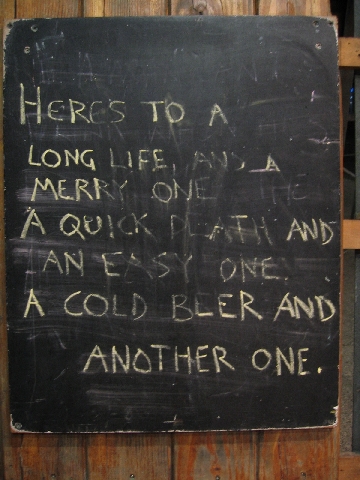 HERES TO A
LONG LIFE, AND A
MERRY ONE
A QUICK DEATH AND
AN EASY ONE.
A COLD BEER AND
ANOTHER ONE.